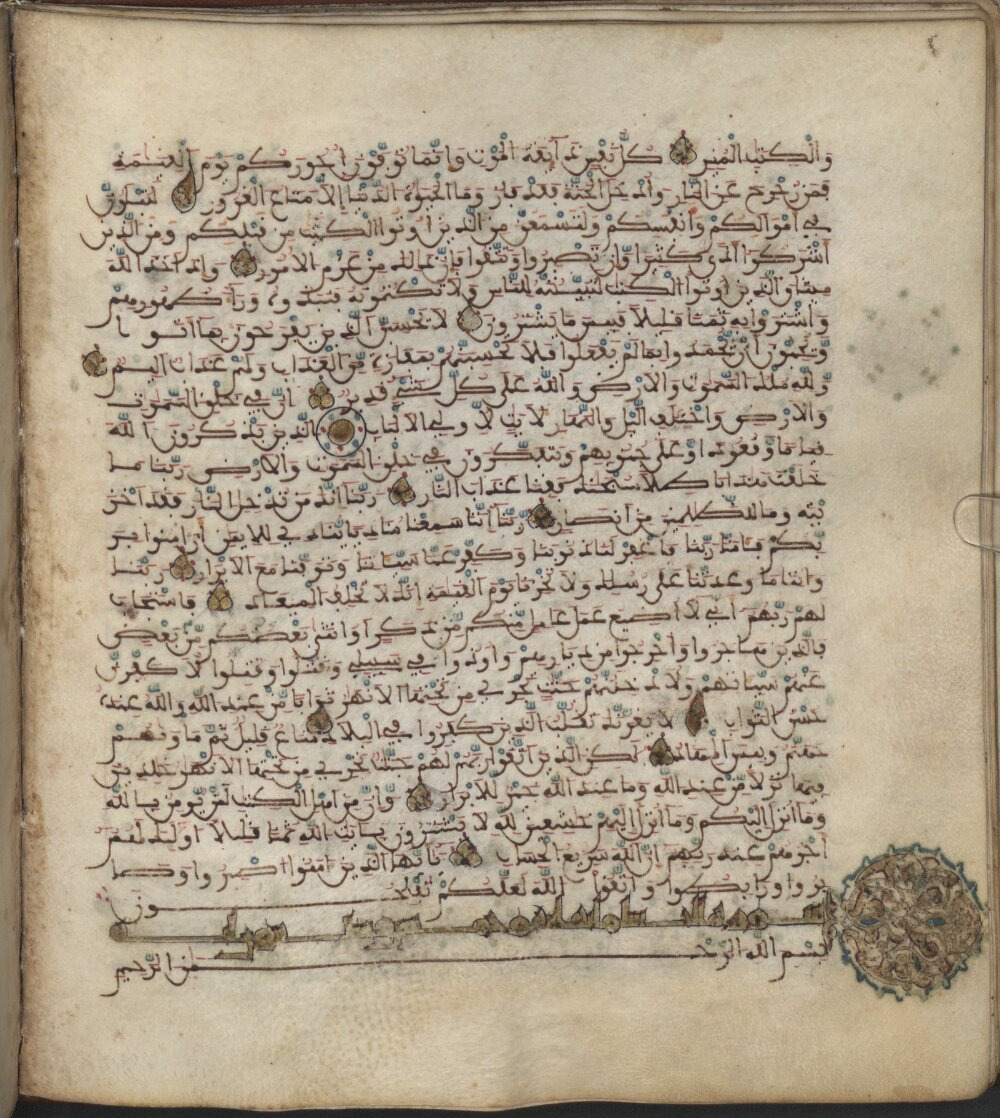 والكتب المنير كل نفس ذآيقة الموت وانما توفون اجوركم يوم القيمة
فمن زحزح عن النار وادخل الجنة فقد فاز وما الحيوة الدنيا إلا متاع الغرور لتبلون
في اموالكم وانفسكم ولتسمعن من الذين اوتوا الكتب من قبلكم ومن الذين
اشركوا اذى كثيرا وان تصبروا وتتقوا فإن ذلك من عزم الامور واذ اخذ الله
ميثاق الذين اوتوا الكتب لتبيننه للناس ولا تكتمونه فنبذوه ورآء ظهورهم
واشتروا به ثمنا قليلا فبيس ما يشترون لا يحسبن الذين يفرحون بما اتوا
ويحبون ان يحمدوا بما لم يفعلوا فلا تحسبنهم بمفازة من العذاب ولهم عذاب اليم
ولله ملك السموت والارض والله على كل شيء قدير ان في خلق السموت
والارض واختلف اليل والنهار لآيت لاولي الالباب الذين يذكرون الله
قيما وقعودا وعلى جنوبهم ويتفكرون في خلق السموت والارض ربنا ما
خلقت هذا بطلا سبحنك فقنا عذاب النار ربنا انك من تدخل النار فقد اخز
يته وما للظلمين من انصار ربنا اننا سمعنا مناديا ينادي للايمن ان امنوا بر
بكم فامنا ربنا فاغفر لنا ذنوبنا وكفر عنا سياتنا وتوفنا مع الابرار ربنا
واتنا ما وعدتنا على رسلك ولا تخزنا يوم القيمة انك لا تخلف الميعاد فاستجاب
لهم ربهم اني لا اضيع عمل عامل منكم من ذكر او انثى بعضكم من بعض
فالذين هاجروا واخرجوا من ديرهم واوذوا في سبيلي وقتلوا وقتلوا لاكفرن
عنهم سياتهم ولادخلنهم جنت تجري من تحتها الانهر ثوابا من عند الله والله عنده
حسن الثواب لا يغرنك تقلب الذين كفروا في البلد متاع قليل ثم ماويهم
جهنم وبيس المهاد لكن الذين اتقوا ربهم لهم جنت تجري من تحتها الانهر خلدين
فيها نزلا من عند الله وما عند الله خير للابرار وان من اهل الكتب لمن يومن بالله
وما انزل اليكم وما انزل اليهم خشعين لله لا يشترون بايت الله ثمنا قليلا اوليك لهم
اجرهم عند ربهم ان الله سريع الحساب يايها الذين امنوا اصبروا وصا
بروا ورابطوا واتقوا الله لعلكم تفلحون
بسم الله الرحمن الرحيم